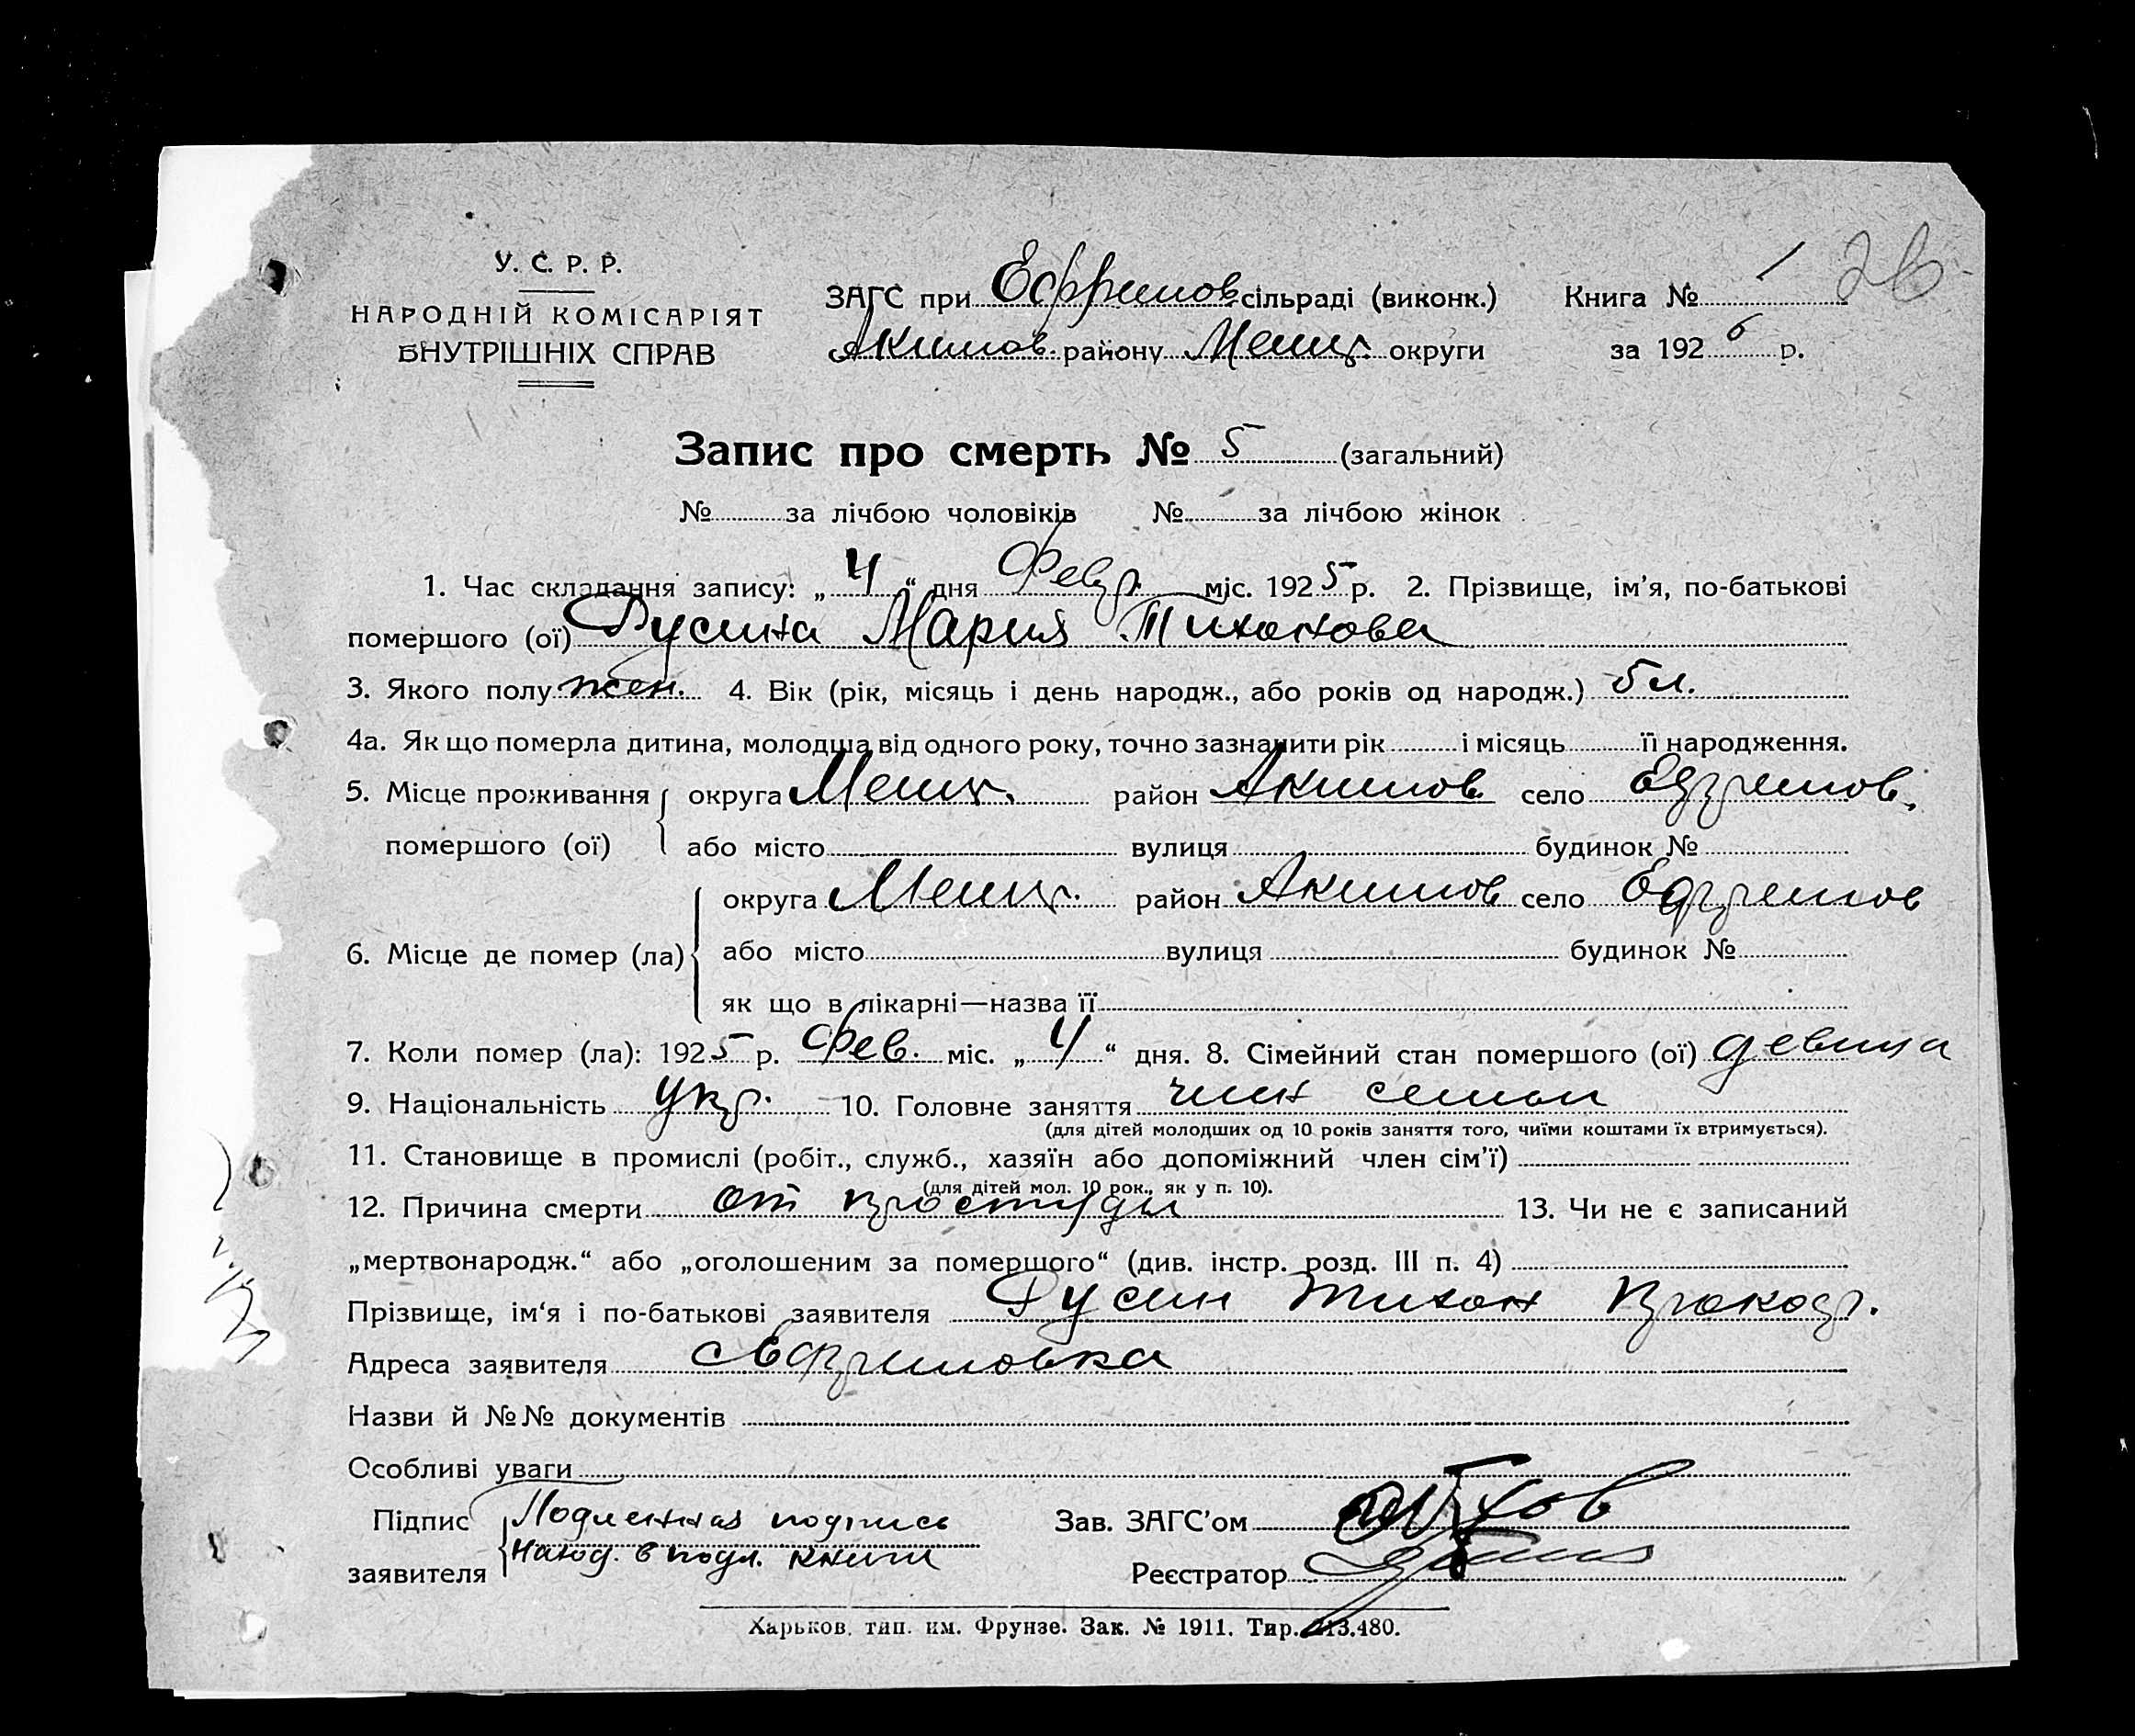 У. С. Р. Р.
НАРОДНІЙ КОМІСАРІЯТ
ВНУТРІШНІХ СПРАВ
ЗАГС при Ефремов сільраді (виконк.) Книга № 1 26
Акимов. району Мелит. округи за 1926 р.
Запис про смерть № 5 (загальний)
№ за лічбою чоловіків № за лічбою жінок
1. Час складання запису: „4“ дня Февр. міс. 1925 р. 2. Прізвище, ім’я, по-батькові
помершого (ої) Дусина Мария Тихонова
3. Якого полу жен. 4. Вік (рік, місяць і день народж., або років од народж.) 5 л.
4а. Як що померла дитина, молодша від одного року, точно зазначити рік і місяць її народження.
5. Місце проживання округа Мелит. район Акимов. село Ефремов.
помершого (ої) або місто вулиця будинок №
округа Мелит. район Акимов село Ефремов
6. Місце де помер (ла) або місто вулиця будинок №
як що в лікарні—назва її
7. Коли помер (ла): 1925 р. Фев. міс. „4“ дня. 8. Сімейний стан помершого (ої) девица
9. Національність укр. 10. Головне заняття член семьи
(для дітей молодших од 10 років заняття того, чиїми коштами їх втримується).
11. Становище в промислі (робіт., служб., хазяїн або допоміжний член сім’ї)
(для дітей мол. 10 рок., як у п. 10).
12. Причина смерти от простуды 13. Чи не є записаний
„мертвонародж.“ або „оголошеним за помершого“ (див. інстр. розд. III п. 4)
Прізвище, ім‘я і по-батькові заявителя Дусин Тихон Прокоф.
Адреса заявителя с Ефремовка
Назви й №№ документів
Особливі уваги
Підпис Подлинная подпись Зав. ЗАГС’ом
заявителя Наход. в подл. книги Реєстратор
Харьков, тип. им. Фрунзе. Зак. № 1911. Тир. 213.480.